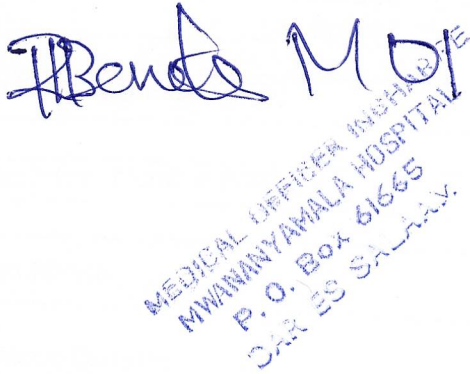 MOI
MEDICAL OFFICER INCHARGE
MWANANYAMALA HOSPITAL
P.O. Box 61665
DAR ES SALAAM.